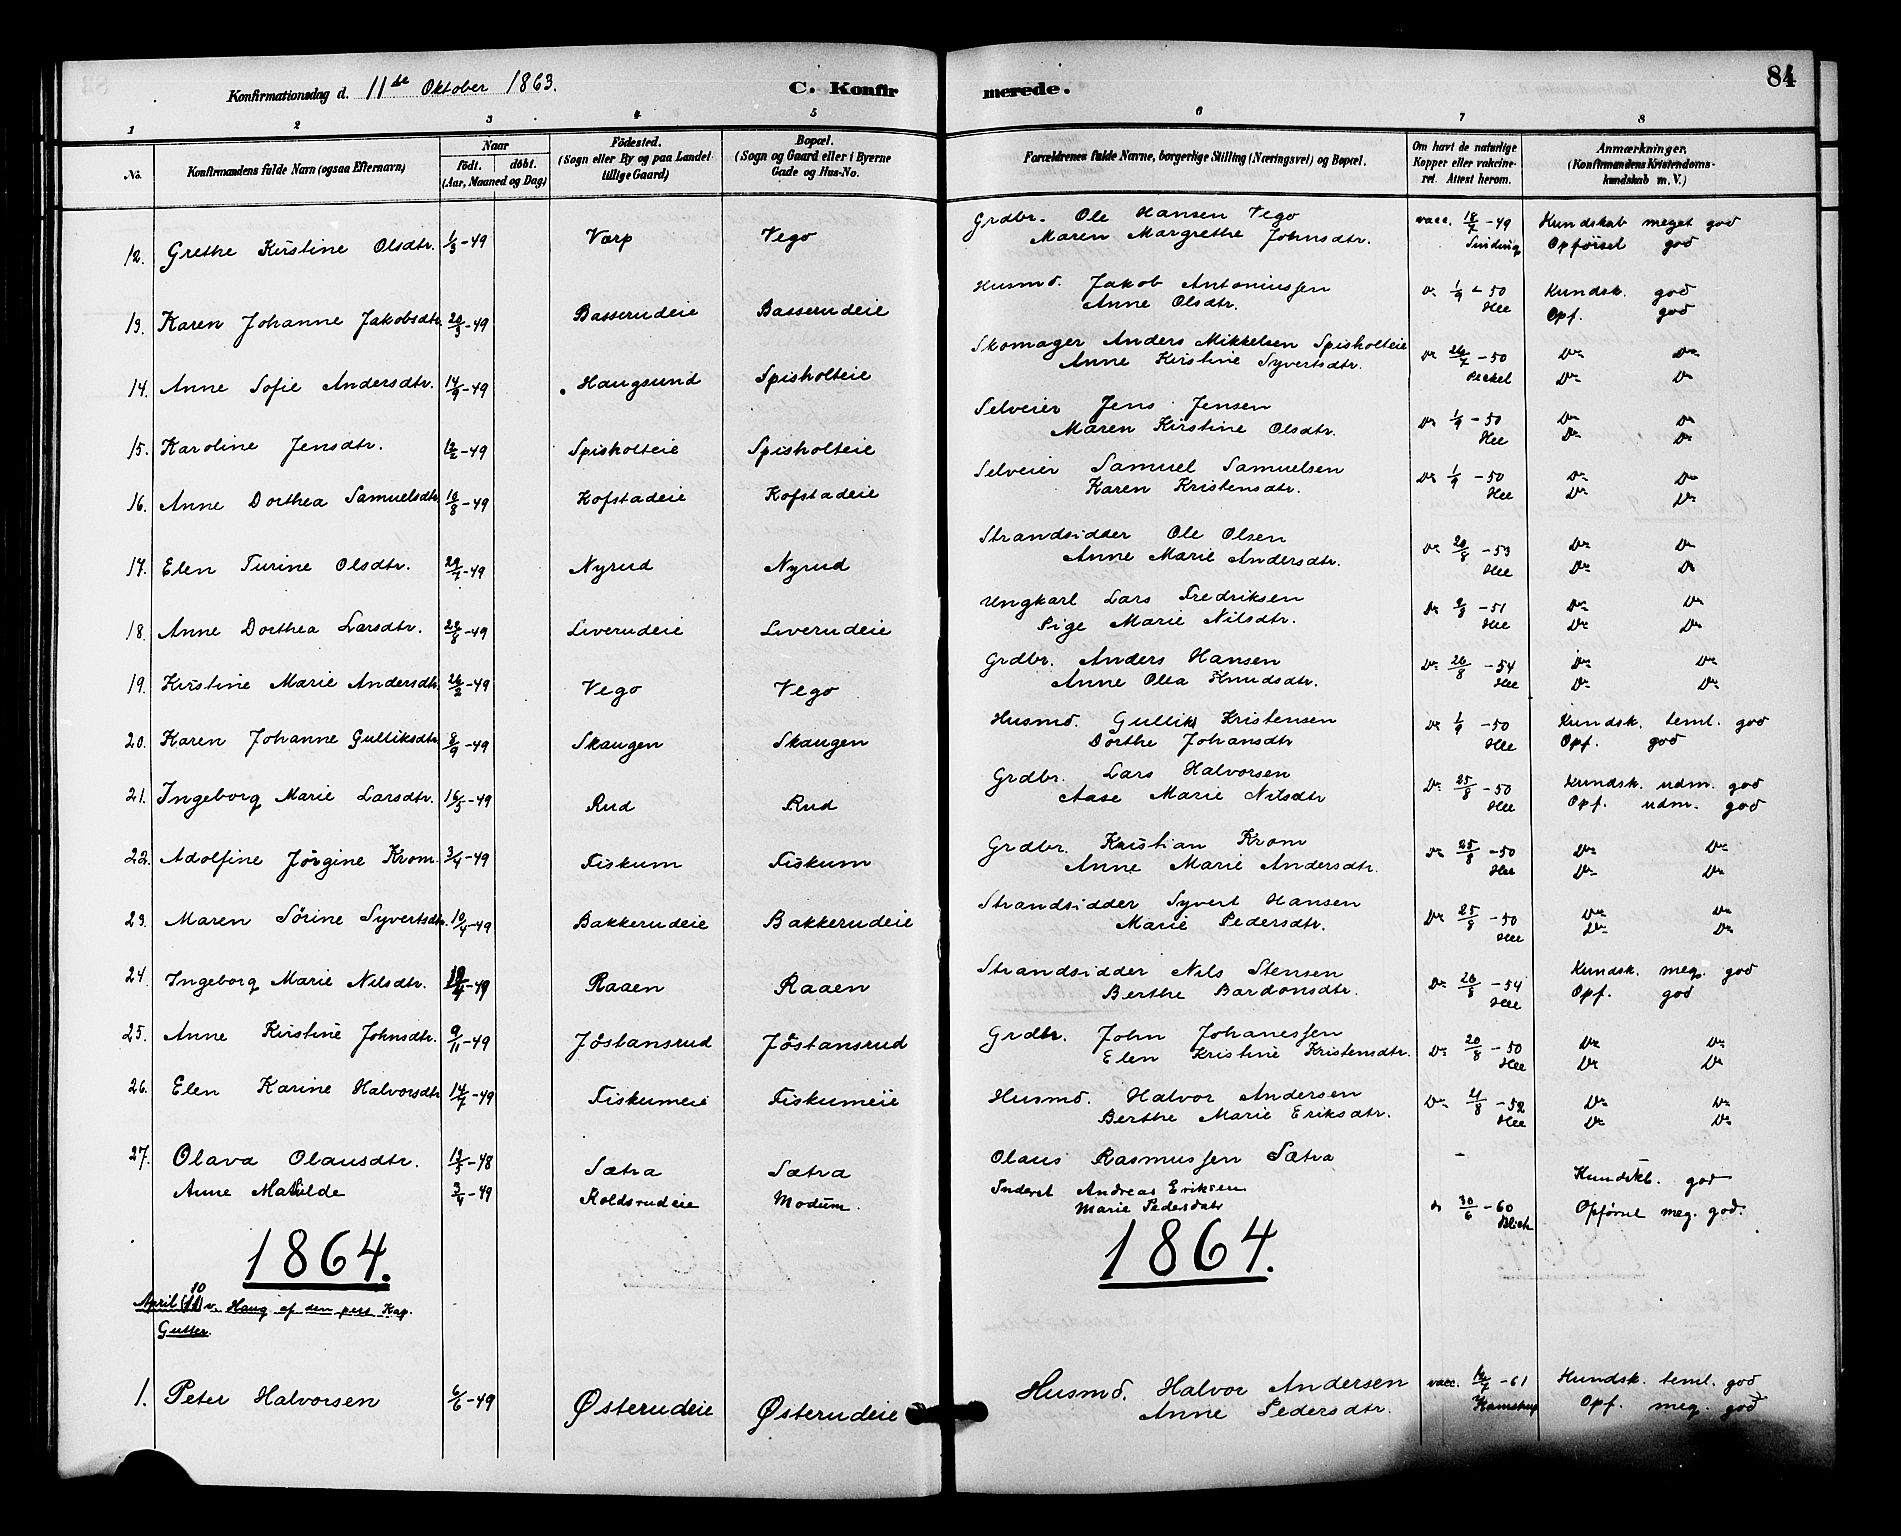 Konfirmationsdag d. 11te Oktober 1863. C. Konfirmerede. 84
1 2 3 4 5 6 7 8
No. Konfirmandens fulde Navn (ogsaa Efternavn) Naar født. døbt. (Aar, Maaned og Dag) Fødested. (Sogn eller By og paa Landet tillige Gaard) Bopæl. (Sogn og Gaard eller i Byerne Gade og Hus-No. Forældrenes fulde Navne, borgerlige Stilling (Næringsvei) og Bopæl. Om havt de naturlige Kopper eller vakcineret. Attest herom. Anmærkninger, (Konfirmandens Kristendomskundskab m. V.)
12. Grethe Kirstine Olsdtr. 1/3-49 Varp Vego Grdbr. Ole Hansen Vego vacc. 18/7-49 Kundskab meget god
Maren Margrethe Johnsdtr. Sinding Opførsel god
13. Karen Johanne Jakobsdtr. 20/3-49 Basserudeie Basserudeie Husmd. Jakob Antoniussen Do 1/9-50 Kundsk. god
Anne Olsdtr. Hee Opf. god
14. Anne Sofie Andersdtr. 14/9-49 Haugsund Spisholteie Skomager Anders Mikkelsen Spisholteie Do 26/7-50 Do Do
Anne Kirstine Syvertsdtr. Do Do
15. Karoline Jensdtr. 12/2-49 Spisholteie Spisholteie Selveier Jens Jensen Do 1/9-50 Do Do
Maren Kirstine Olsdtr. Hee Do Do
16. Anne Dorthea Samuelsdtr. 10/8-49 Kofstadeie Kofstadeie Selveier Samuel Samuelsen Do 1/9-50 Do Do
Karen Kristensdtr. Hee Do Do
17. Elen Turine Olsdtr. 29/7-49 Nyrud Nyrud Strandsidder Ole Olsen Do 20/8-53 Do Do
Anne Marie Andersdtr. Hee Do Do
18. Anne Dorthea Larsdtr. 22/8-49 Liverudeie Liverudeie Ungkarl Lars Fredriksen Do 9/8-51 Do Do
Pige Marie Nilsdtr. Hee Do Do
19. Kirstine Marie Andersdtr. 26/2-49 Vego Vego Grdbr. Anders Hansen Do 20/8-54 Do Do
Anne Olea Knudsdtr. Hee Do Do
20. Karen Johanne Gulliksdtr. 8/9-49 Skaugen Skaugen Husmd. Gullik Kristensen Do 1/9-50 Kundsk. teml. god
Dorthe Johansdtr Hee Opf. god
21. Ingeborg Marie Larsdtr. 16/3-49 Rud Rud Grdbr. Lars Halvorsen Do 25/8-50 Kundsk. udm. god
Aase Marie Nilsdtr Hee Opf. udm. god
22. Adolfine Jørgine Krom. 3/4-49 Fiskum Fiskum Grdbr. Kristian Krom Do 25/8-50 Do Do
Anne Marie Andersdtr. Hee Do Do
23. Maren Sørine Syvertsdtr. 10/4-49 Bakkerudeie Bakkerudeie Strandsidder Syvert Hansen Do 25/8-50 Do Do
Marie Pedersdtr. Hee Do Do
24. Ingeborg Marie Nilsdtr. Raaen Raaen Strandsidder Nils Stensen Do 20/8-54 Kundsk. meg. god
Berthe Bardonsdtr. Hee Opf. god
25. Anne Kirstine Johnsdtr. 9/11-49 Jøstansrud Jøstansrud Grdbr. John Johanessen Do 20/8-50 Do Do
Elen Kristine Kristensdtr. Hee Do Do
26. Elen Karine Halvorsdtr 14/7-49 Fiskumeie Fiskumeie Husmd. Halvor Andersen Do 21/8-52 Do Do
Berthe Marie Eriksdtr. Hee Do Do
27. Olava Olausdtr. 12/3-48 Sætra Sætra Olaus Rasmussen Sætra -
Anne Matilde 3/4-49 Roldsrudeie Modum. Inderst Andreas Eriksen Kundskb. god
Marie Pedersdatr Do 30/6-60 Blich Opførsel meg. god.
1864. 1864.
April (11) 10 v. Haug af den pers. Kap.
Gutter.
1. Peter Halvorsen 6/6-49 Østerudeie Østerudeie Husmd. Halvor Andersen vacc. 16/7-61 Kundsk. teml. god
Anne Pedersdtr. Kamstrup Opf. meg. god